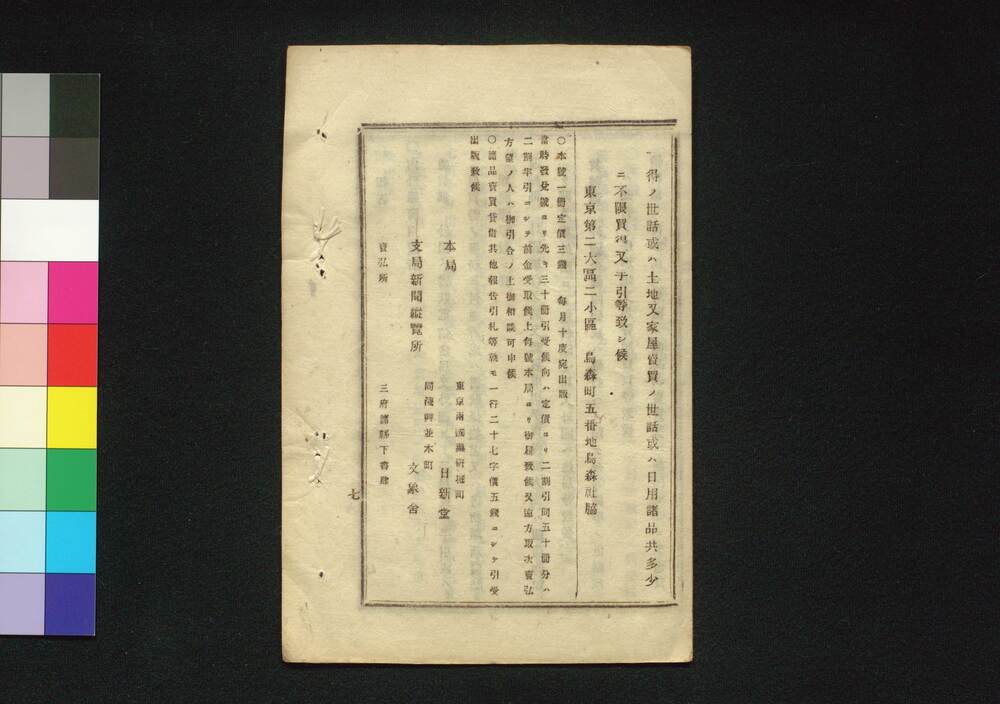 得ノ世話或ハ土地又家屋賣買ノ世話或ハ日用諸品共多少
ニ不限買得又手引等致シ候
東京第二大區二小區 烏森町五番地烏森社脇
〇本號一冊定價三錢 毎月十度宛出版
當時發兌號ヨリ先キ三十冊引受候向ハ定價ヨリ二割引同五十冊分ハ
二割半引ニシテ前金受取候上毎號本局ヨリ御届致候又遠方取次賣弘
方望ノ人ハ御引合ノ上御相談可申候
〇諸品賣買貸借其他報告引札等總テ一行二十七字價五錢ニシテ引受
出版致候
本局 東京両國藥研堀町 日新堂
支局新聞縱覽所 同淺草並木町 文象舍
賣弘所 三府諸縣下書肆
七